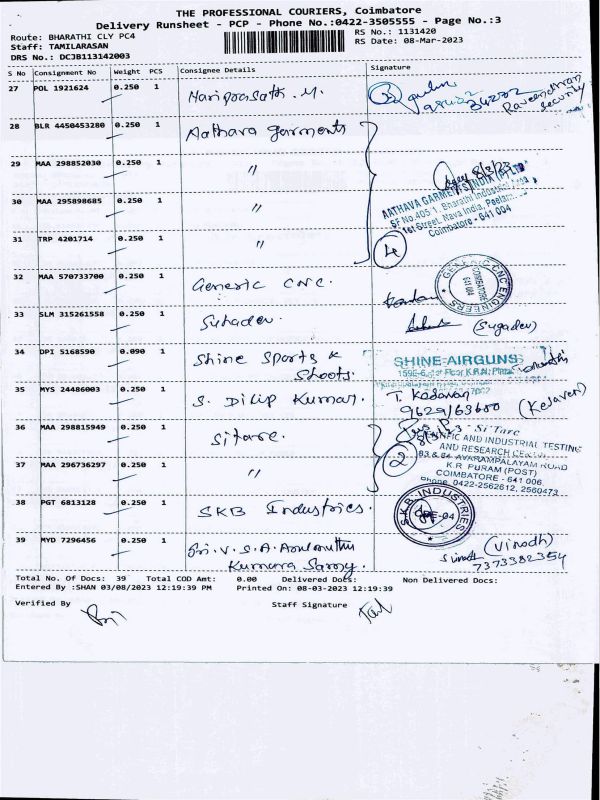 THE PROFESSIONAL COURIERS, Coimbatore
Delivery Runsheet - PCP - Phone No.:0422-3505555 - Page No.:3
Route: BHARATHI CLY PC4
RS No.: 1131420
Staff: TAMILARASAN
RS Date: 08-Mar-2023
DRS No.: DCJB113142003
S No Consignment No Weight PCS Consignee Details Signature
27 POL 1921624 0.250 1 Hariprasath. M.
Raveendhran
Security
28 BLR 4450453280 0.250 1 Aathava garments
29 MAA 298852030 0.250 1 "
8/3/23
30 MAA 295898685 0.250 1 "
AATHAVA GARMENTS INDIA (P) LTD
SF No.405/1, Bharathi Industrial
1st Street, Nava India, Peelam
Coimbatore - 641 004
31 TRP 4201714 0.250 1 "
4
32 MAA 570733700 0.250 1 Generic CNC.
GENERIC CNC ENGINEERS
COIMBATORE
641 004
33 SLM 315261558 0.250 1 Sugadev.
(Sugadev)
34 DPI 5168590 0.090 1 Shine Sports &
Shoots.
SHINE-AIRGUNS
35 MYS 24486003 0.250 1 S. Dilip Kumar.
T. Kadavan
9629163680 (Kesaven)
36 MAA 298815949 0.250 1 Sitarc.
8/3/23 - SiTarc
SCIENTIFIC AND INDUSTRIAL TESTING
AND RESEARCH CENTRE
83 & 84 AVARAMPALAYAM ROAD
K.R PURAM (POST)
COIMBATORE - 641 006.
Phone 0422-2562612, 2560473
37 MAA 296736297 0.250 1 "
2
38 PGT 6813128 0.250 1 SKB Industries.
S.K.B. INDUSTRIES
CBE-04
39 MYD 7296456 0.250 1 Sri. V. S. A. Arulmuthu
Kumara Samy.
Vinodh (Vinodh)
7373382354
Total No. Of Docs: 39 Total COD Amt: 0.00 Delivered Docs: Non Delivered Docs:
Entered By :SHAN 03/08/2023 12:19:39 PM Printed On: 08-03-2023 12:19:39
Verified By Staff Signature